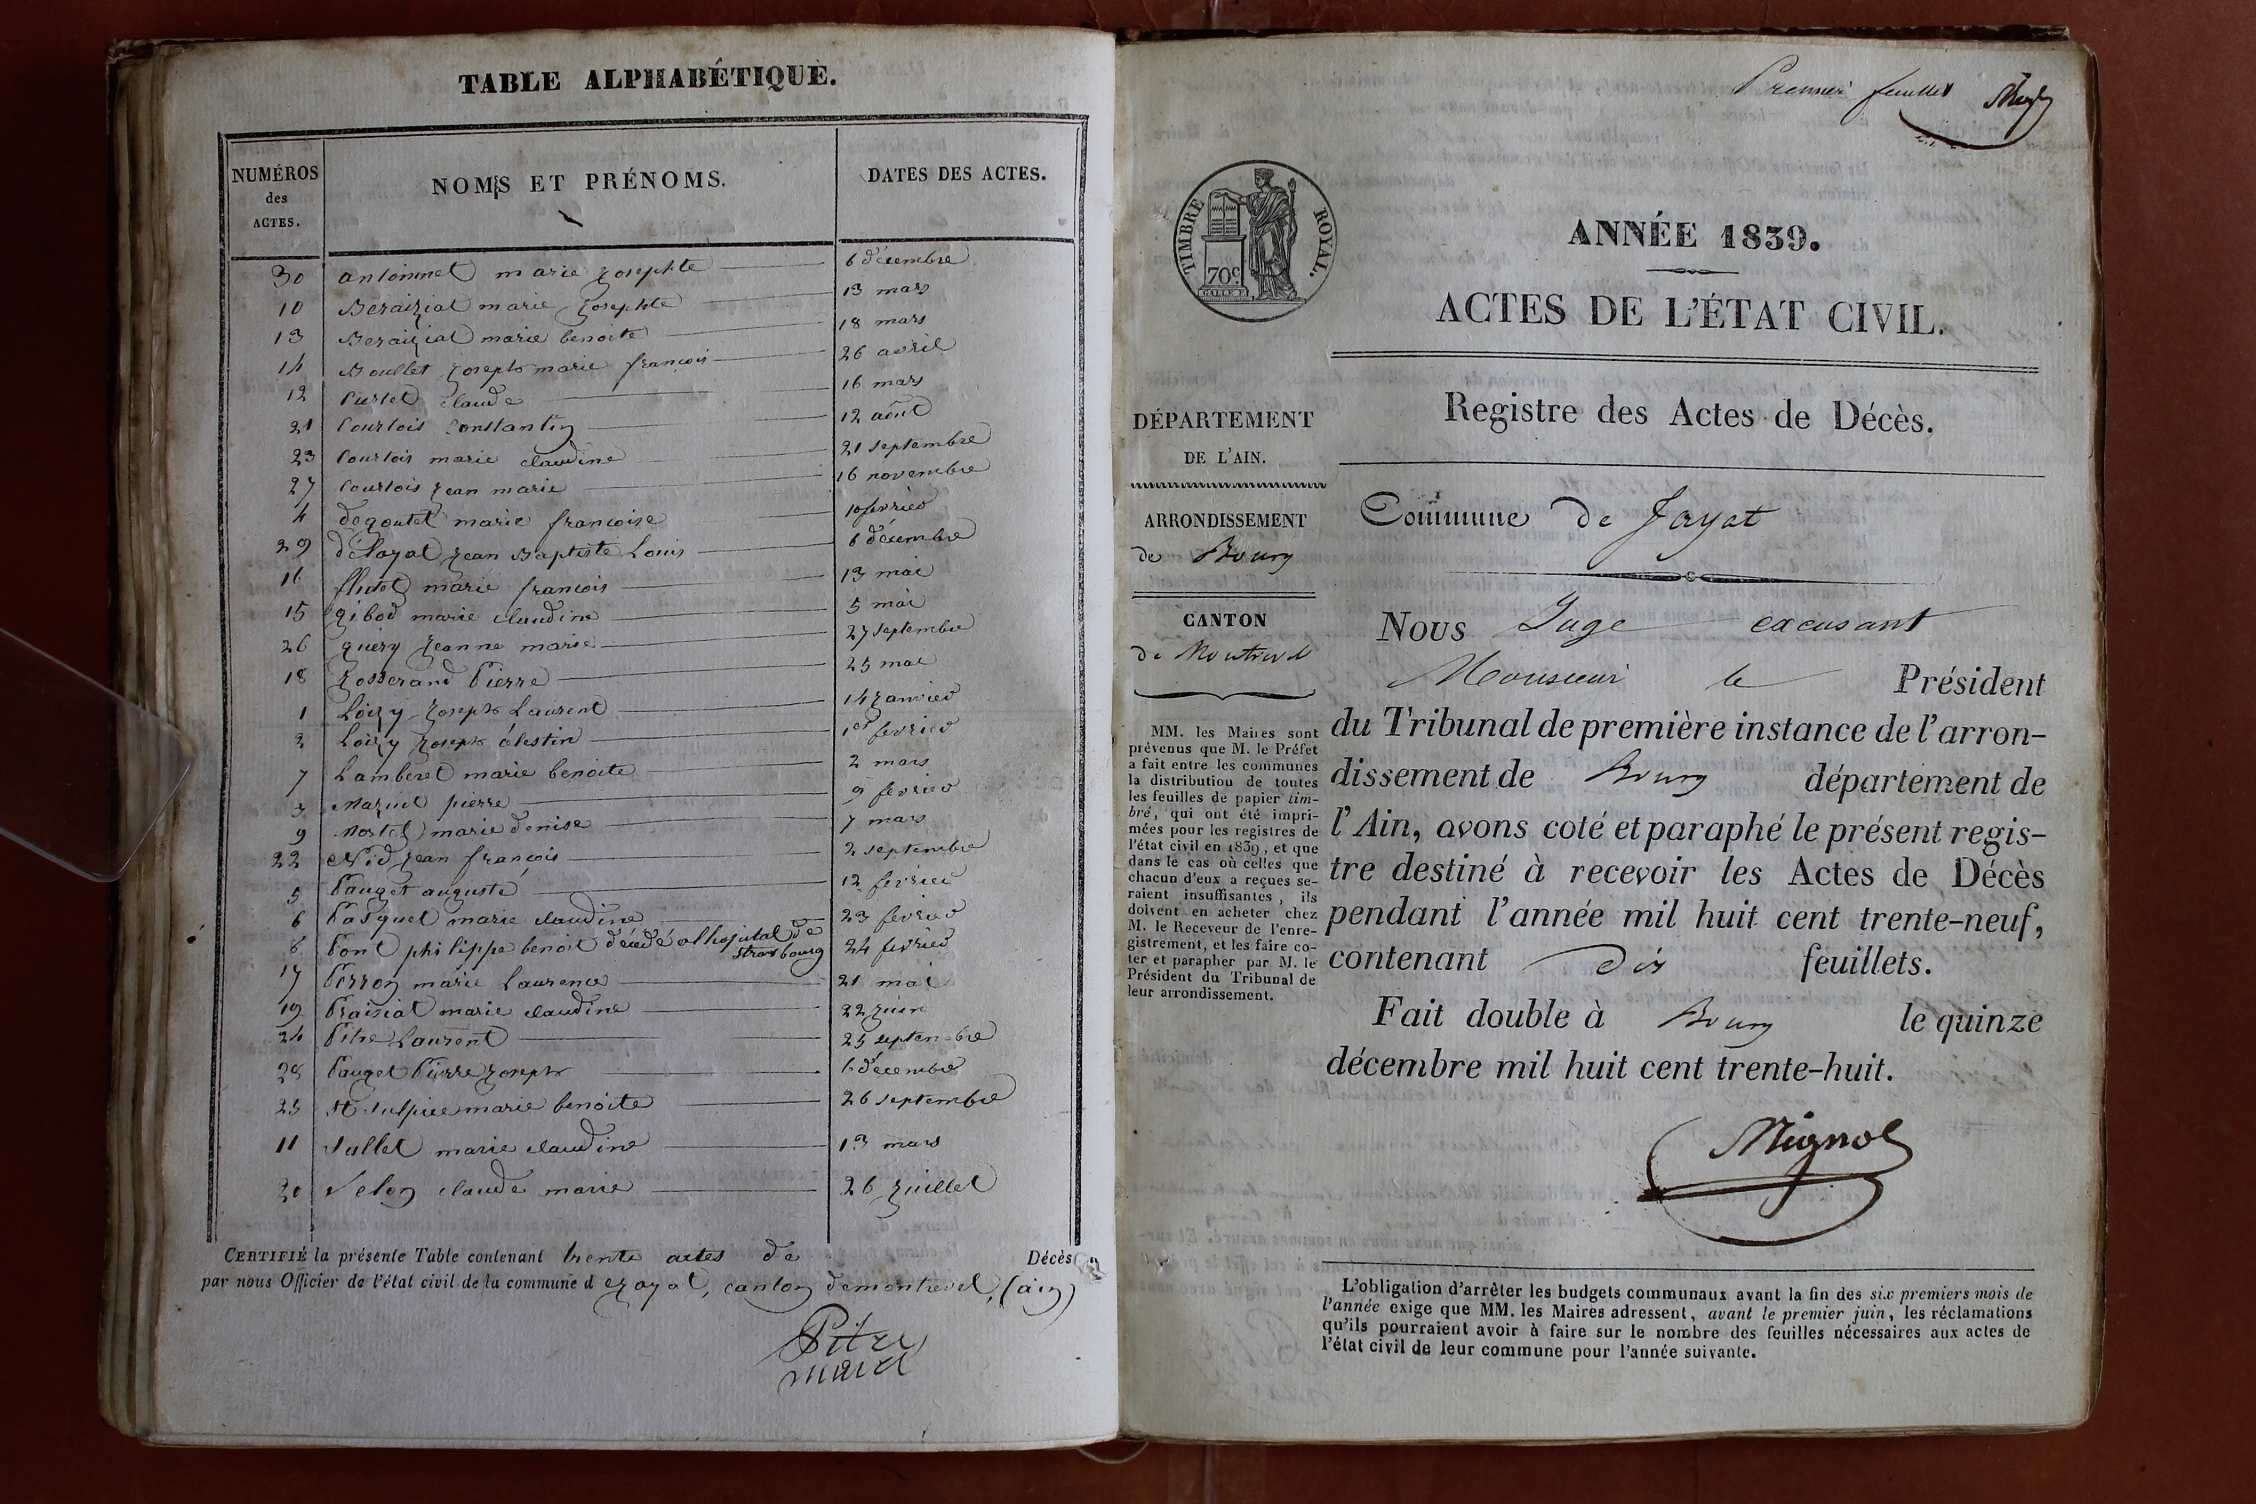 TABLE ALPHABÉTIQUE.
NUMÉROS des ACTES.
NOMS ET PRÉNOMS.
DATES DES ACTES.
30 antoinnet marie Josephte 6 décembre
10 Beraizial marie Josephte 13 mars
13 Beraizial marie benoite 18 mars
14 Boullet Joseph marie françois 26 avril
12 Curtet claude 16 mars
21 Courtois Constantin 12 août
23 Courtois marie claudine 21 septembre
27 Courtois Jean marie 16 novembre
4 degoutet marie francoise 10 février
29 délayat Jean Baptiste Louis 6 décembre
16 flutet marie francois 13 mai
15 gibod marie claudine 5 mai
26 guéry Jeanne marie 27 septembre
18 Josserand Pierre 25 mai
1 Loizy Joseph Laurent 14 Janvier
2 Loizy Joseph célestin 1er fevrier
7 Lamberet marie benoite 2 mars
3 Mazuet pierre 9 fevrier
9 Mortel marie denise 7 mars
22 Nid Jean françois 2 septembre
5 Pauget auguste 12 février
6 Pasquet marie claudine 23 fevrier
8 Pont philippe benoit décédé al hopital de strasbourg 24 fevrier
17 Perron marie Laurence 21 mai
19 Praizial marie claudine 22 Juin
24 Pitre Laurent 25 septembre
28 Pauget Pierre Joseph 6 décembre
25 St Sulpice marie benoite 26 septembre
11 Sallet marie claudine 13 mars
20 Velon claude marie 26 Juillet
CERTIFIÉ la présente Table contenant trente actes de Décès
par nous Officier de l'état civil de la commune d e Jayat, canton de montrevel, (ain)
Pitre
maire
Premier feuillet
TIMBRE ROYAL.
70c
ANNÉE 1839.
ACTES DE L'ÉTAT CIVIL.
Registre des Actes de Décès.
DÉPARTEMENT
DE L'AIN.
ARRONDISSEMENT
de Bourg
CANTON
de Montrevel
MM. les Maires sont
prévenus que M. le Préfet
a fait entre les communes
la distribution de toutes
les feuilles de papier tim-
bré, qui ont été impri-
mées pour les registres de
l'état civil en 1839, et que
dans le cas où celles que
chacun d'eux a reçues se-
raient insuffisantes, ils
doivent en acheter chez
M. le Receveur de l'enre-
gistrement, et les faire co-
ter et parapher par M. le
Président du Tribunal de
leur arrondissement.
Commune de Jayat
Nous Juge excusant
Monsieur le Président
du Tribunal de première instance de l'arron-
dissement de Bourg département de
l'Ain, avons coté et paraphé le présent regis-
tre destiné à recevoir les Actes de Décès
pendant l'année mil huit cent trente-neuf,
contenant dix feuillets.
Fait double à Bourg le quinze
décembre mil huit cent trente-huit.
Mignot
L'obligation d'arrêter les budgets communaux avant la fin des six premiers mois de
l'année exige que MM. les Maires adressent, avant le premier juin, les réclamations
qu'ils pourraient avoir à faire sur le nombre des feuilles nécessaires aux actes de
l'état civil de leur commune pour l'année suivante.